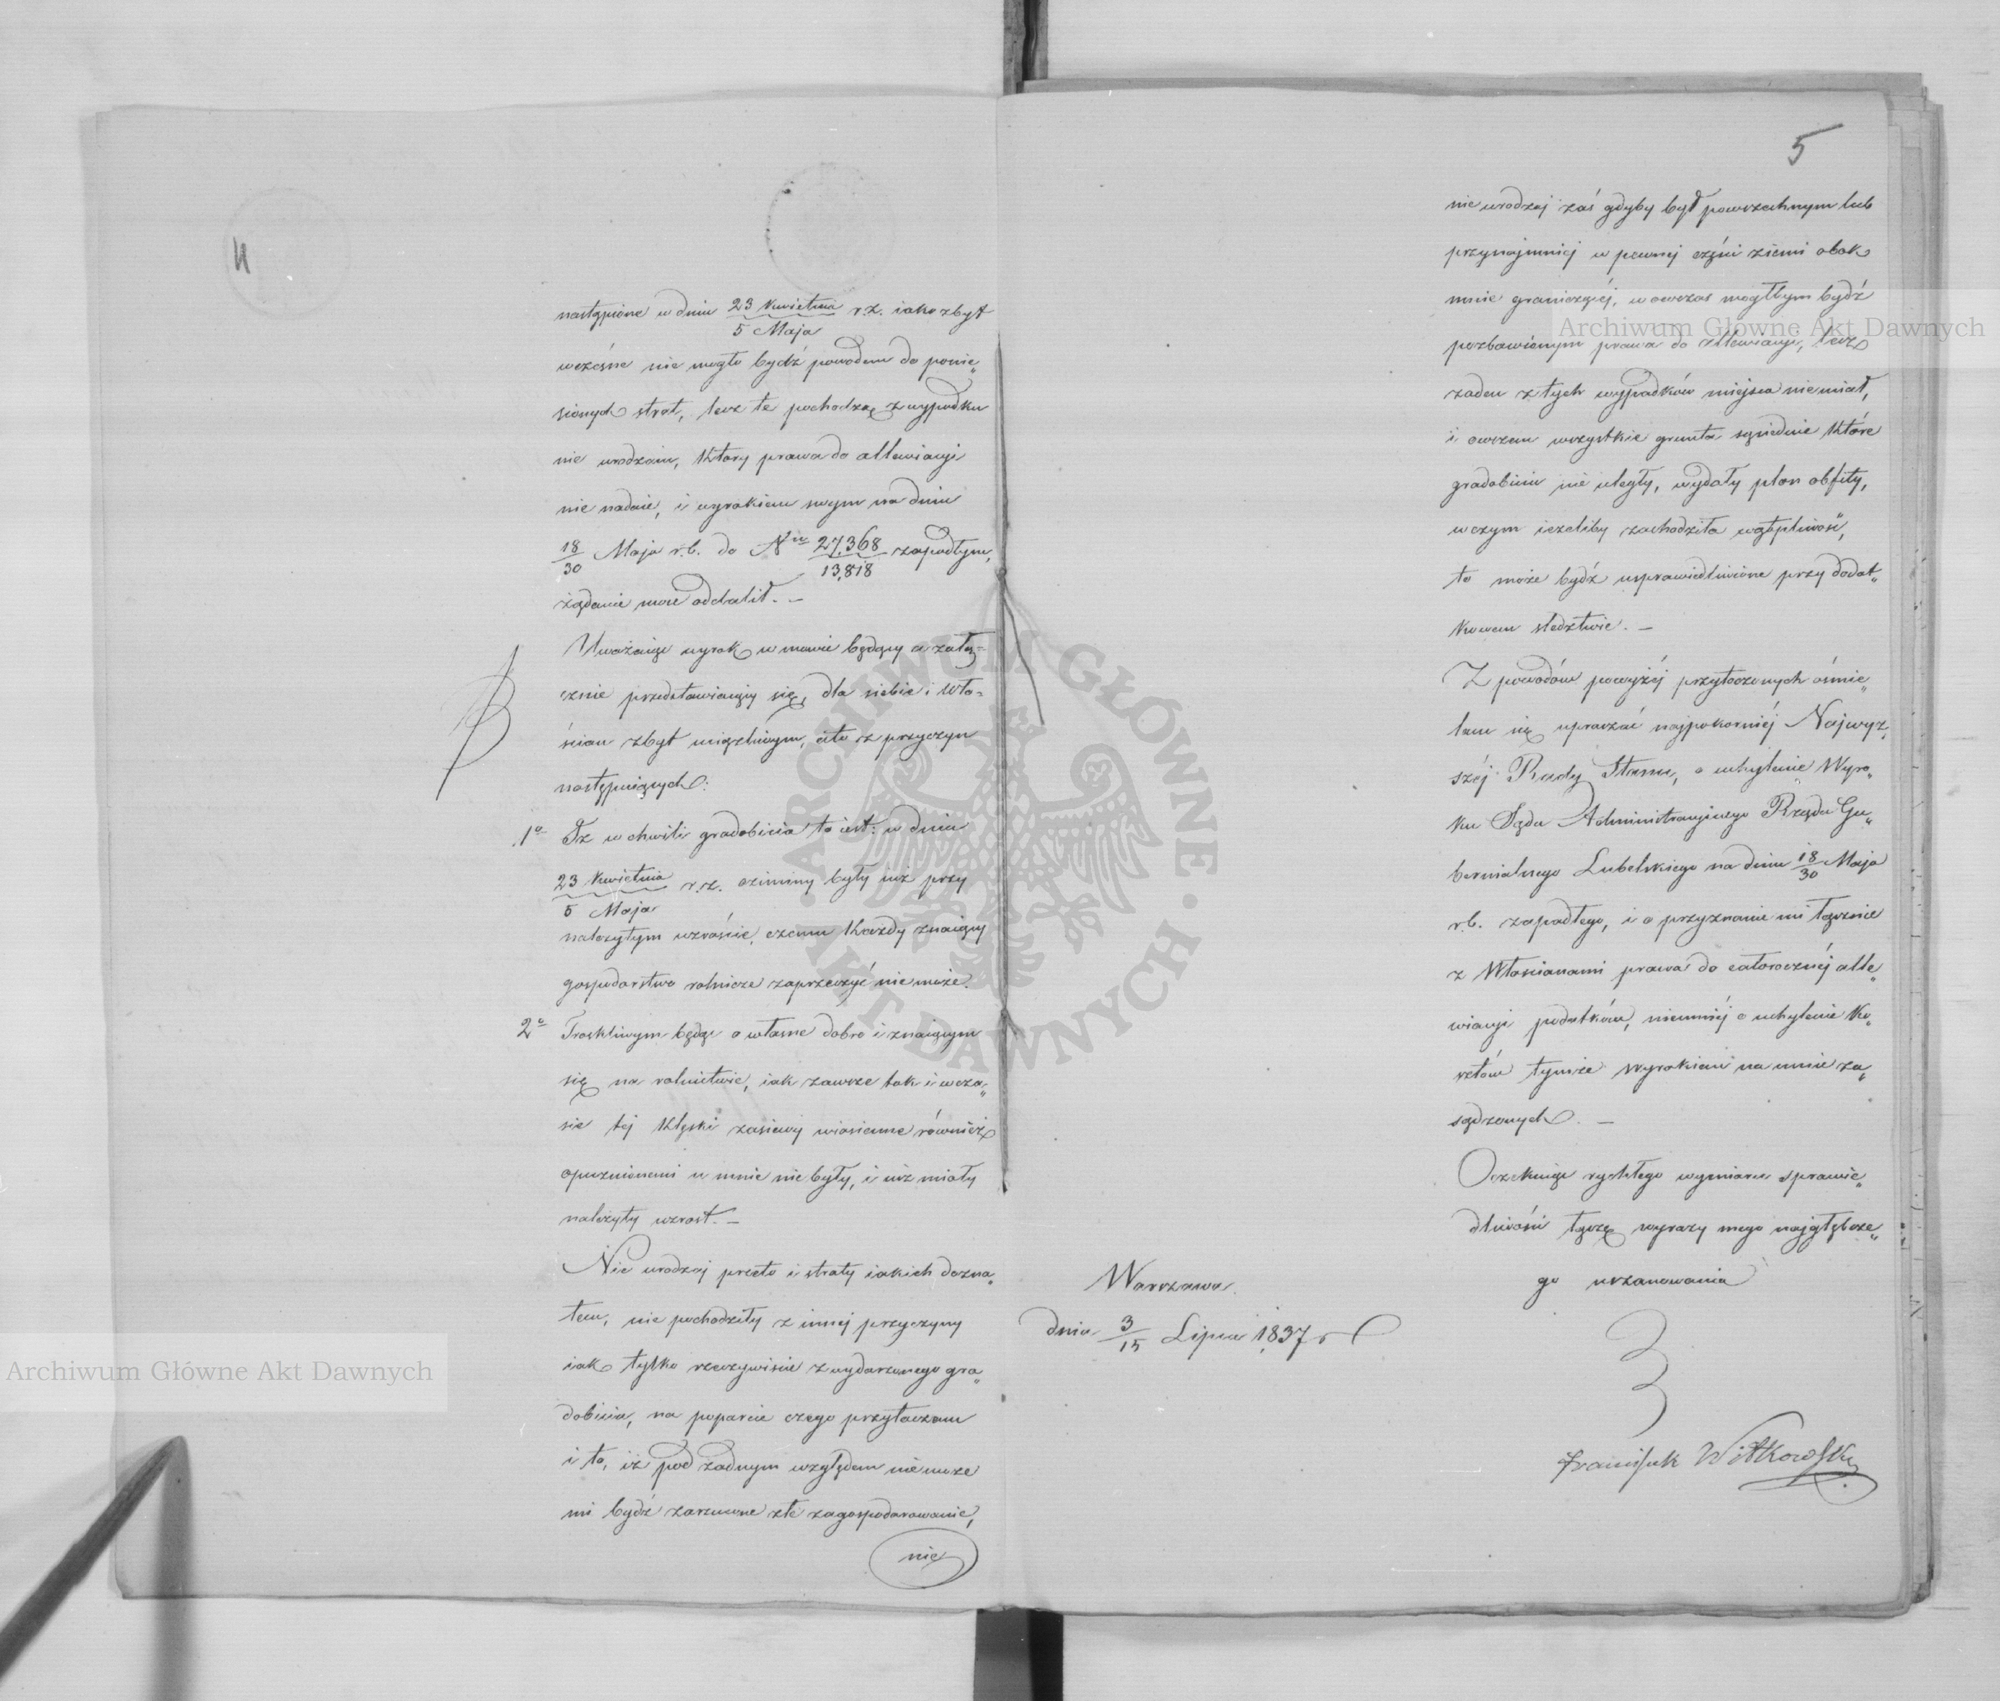 4
nastąpione w dniu 23 Kwietnia / 5 Maja r. z. iako zbyt
wcześne nie mogło bydź powodem do ponie„
sionych strat, lecz te pochodzą z wypadku
nie urodzaiu, który prawa do allewiacyi
nie nadaie, i wyrokiem swym na dniu
18/30 Maja r. b. do Nru 27,368 / 13,818 zapadłym,
żądanie moie oddalił. —
Uważaiąc wyrok w mowie będący a załą=
cznie przedstawiaiący się, dla siebie i Wło=
ścian zbyt uciążliwym, a to z przyczyn
następuiących:
1o Iż w chwili gradobicia to iest: w dniu
23 Kwietnia / 5 Maja r. z. oziminy były iuż przy
należytym wzroście, czemu każdy znaiący
gospodarstwo rolnicze zaprzeczyć nie może.
2o Troskliwym będąc o własne dobro i znaiącym
się na rolnictwie, iak zawsze tak i w cza„
sie tej klęski zasiewy wiosienne również
opuznionemi u mnie nie były, i iuż miały
należyty wzrost. —
Nie urodzaj przeto i straty iakich dozna„
łem, nie pochodziły z innej przyczyny
iak tylko rzeczywiście z wydarzonego gra„
dobicia, na poparcie czego przytaczam
i to, iż pod żadnym względem nie może
mi bydź zarzucone złe zagospodarowanie,
nie
5
nie urodzaj zaś gdyby był powszechnym lub
przynajmniej w pewnej części ziemi obok
mnie graniczącej, wowczas mogłbym bydź
pozbawionym prawa do allewiacyi, lecz
żaden z tych wypadków miejsca nie miał,
i owszem wszystkie grunta sąsiednie które
gradobiciu nie uległy, wydały plon obfity,
w czym ieżeliby zachodziła wątpliwość,
to może bydź usprawiedliwione przy dodat„
kowem śledztwie. —
Z powodów powyżéj przytoczonych ośmie„
lam się upraszać najpokorniéj Najwyż„
széj Rady Stanu, o uchylenie Wyro„
ku Sądu Administracyinego Rządu Gu„
bernialnego Lubelskiego na dniu 18/30 Maja
r. b. zapadłego, i o przyznanie mi łącznie
z Włościanami prawa do całorocznéj alle„
wiacyi podatków, niemniéj o uchylenie ko„
sztów tymże Wyrokiem na mnie za„
sądzonych. —
Oczekuiąc rychłego wymiaru sprawie„
dliwości łączę wyrazy mego najgłębsze„
go uszanowania
Warszawa.
dnia 3/15 Lipca 1837 r
Franciszek Witkowski
Archiwum Główne Akt Dawnych
Archiwum Główne Akt Dawnych
ARCHIWUM GŁÓWNE AKT DAWNYCH